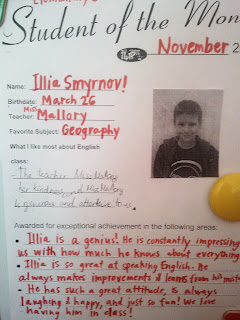 Student of the Mon
November 2
Name: Illia Smyrnov!
Birthday: March 26
Miss
Teacher: Mallory
Favorite Subject: Geography
What I like most about English
class:
- The teacher Miss Mallory
her kindness and Miss Mallory
is generous and attentive to us.
Awarded for exceptional achievement in the following areas:
• Illia is a genius! He is constantly impressing
us with how much he knows about everything
• Illia is so great at speaking English. He
always makes improvements & learns from his
• He has such a great attitude, is always
laughing & happy, and just so fun! We love
having him in class!